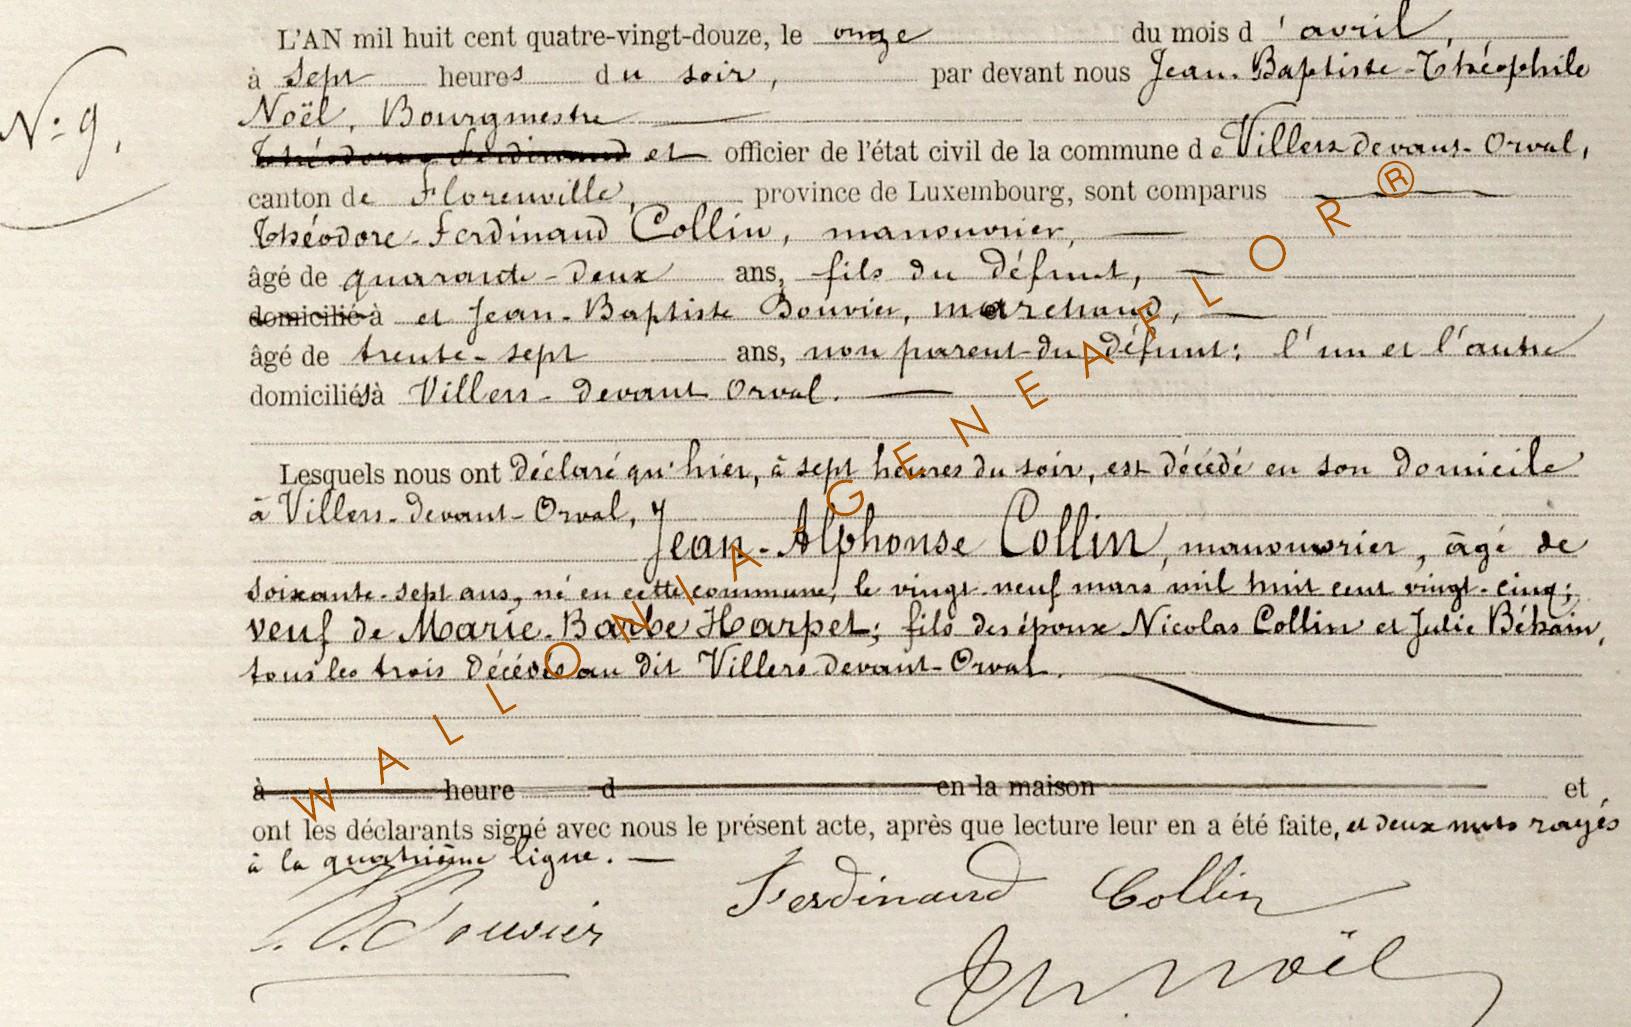 L'AN mil huit cent quatre-vingt-douze, le onze du mois d'avril,
à sept heures du soir, par devant nous Jean-Baptiste-Théophile
Noël, Bourgmestre
Nº 9.
Théodore Ferdinand et officier de l'état civil de la commune de Villers devant-Orval,
canton de Florenville, province de Luxembourg, sont comparus
Théodore-Ferdinand Collin, manouvrier,
âgé de quarante-deux ans, fils du défunt,
domicilié à et Jean-Baptiste Bouvier, marchand,
âgé de trente-sept ans, non parent du défunt; l'un et l'autre
domiciliés à Villers-devant Orval.
Lesquels nous ont déclaré qu'hier, à sept heures du soir, est décédé en son domicile
à Villers-devant-Orval,
Jean-Alphonse Collin, manouvrier, âgé de
soixante-sept ans, né en cette commune, le vingt-neuf mars mil huit cent vingt-cinq;
veuf de Marie-Barbe Harpet; fils des époux Nicolas Collin et Julie Béhain,
tous les trois décédés au dit Villers devant-Orval.
à heure d en la maison et
ont les déclarants signé avec nous le présent acte, après que lecture leur en a été faite, et deux mots rayés
à la quatrième ligne.
J. B. Bouvier Ferdinand Collin
Th Noël
WALLONIA-GENEAFLOR®